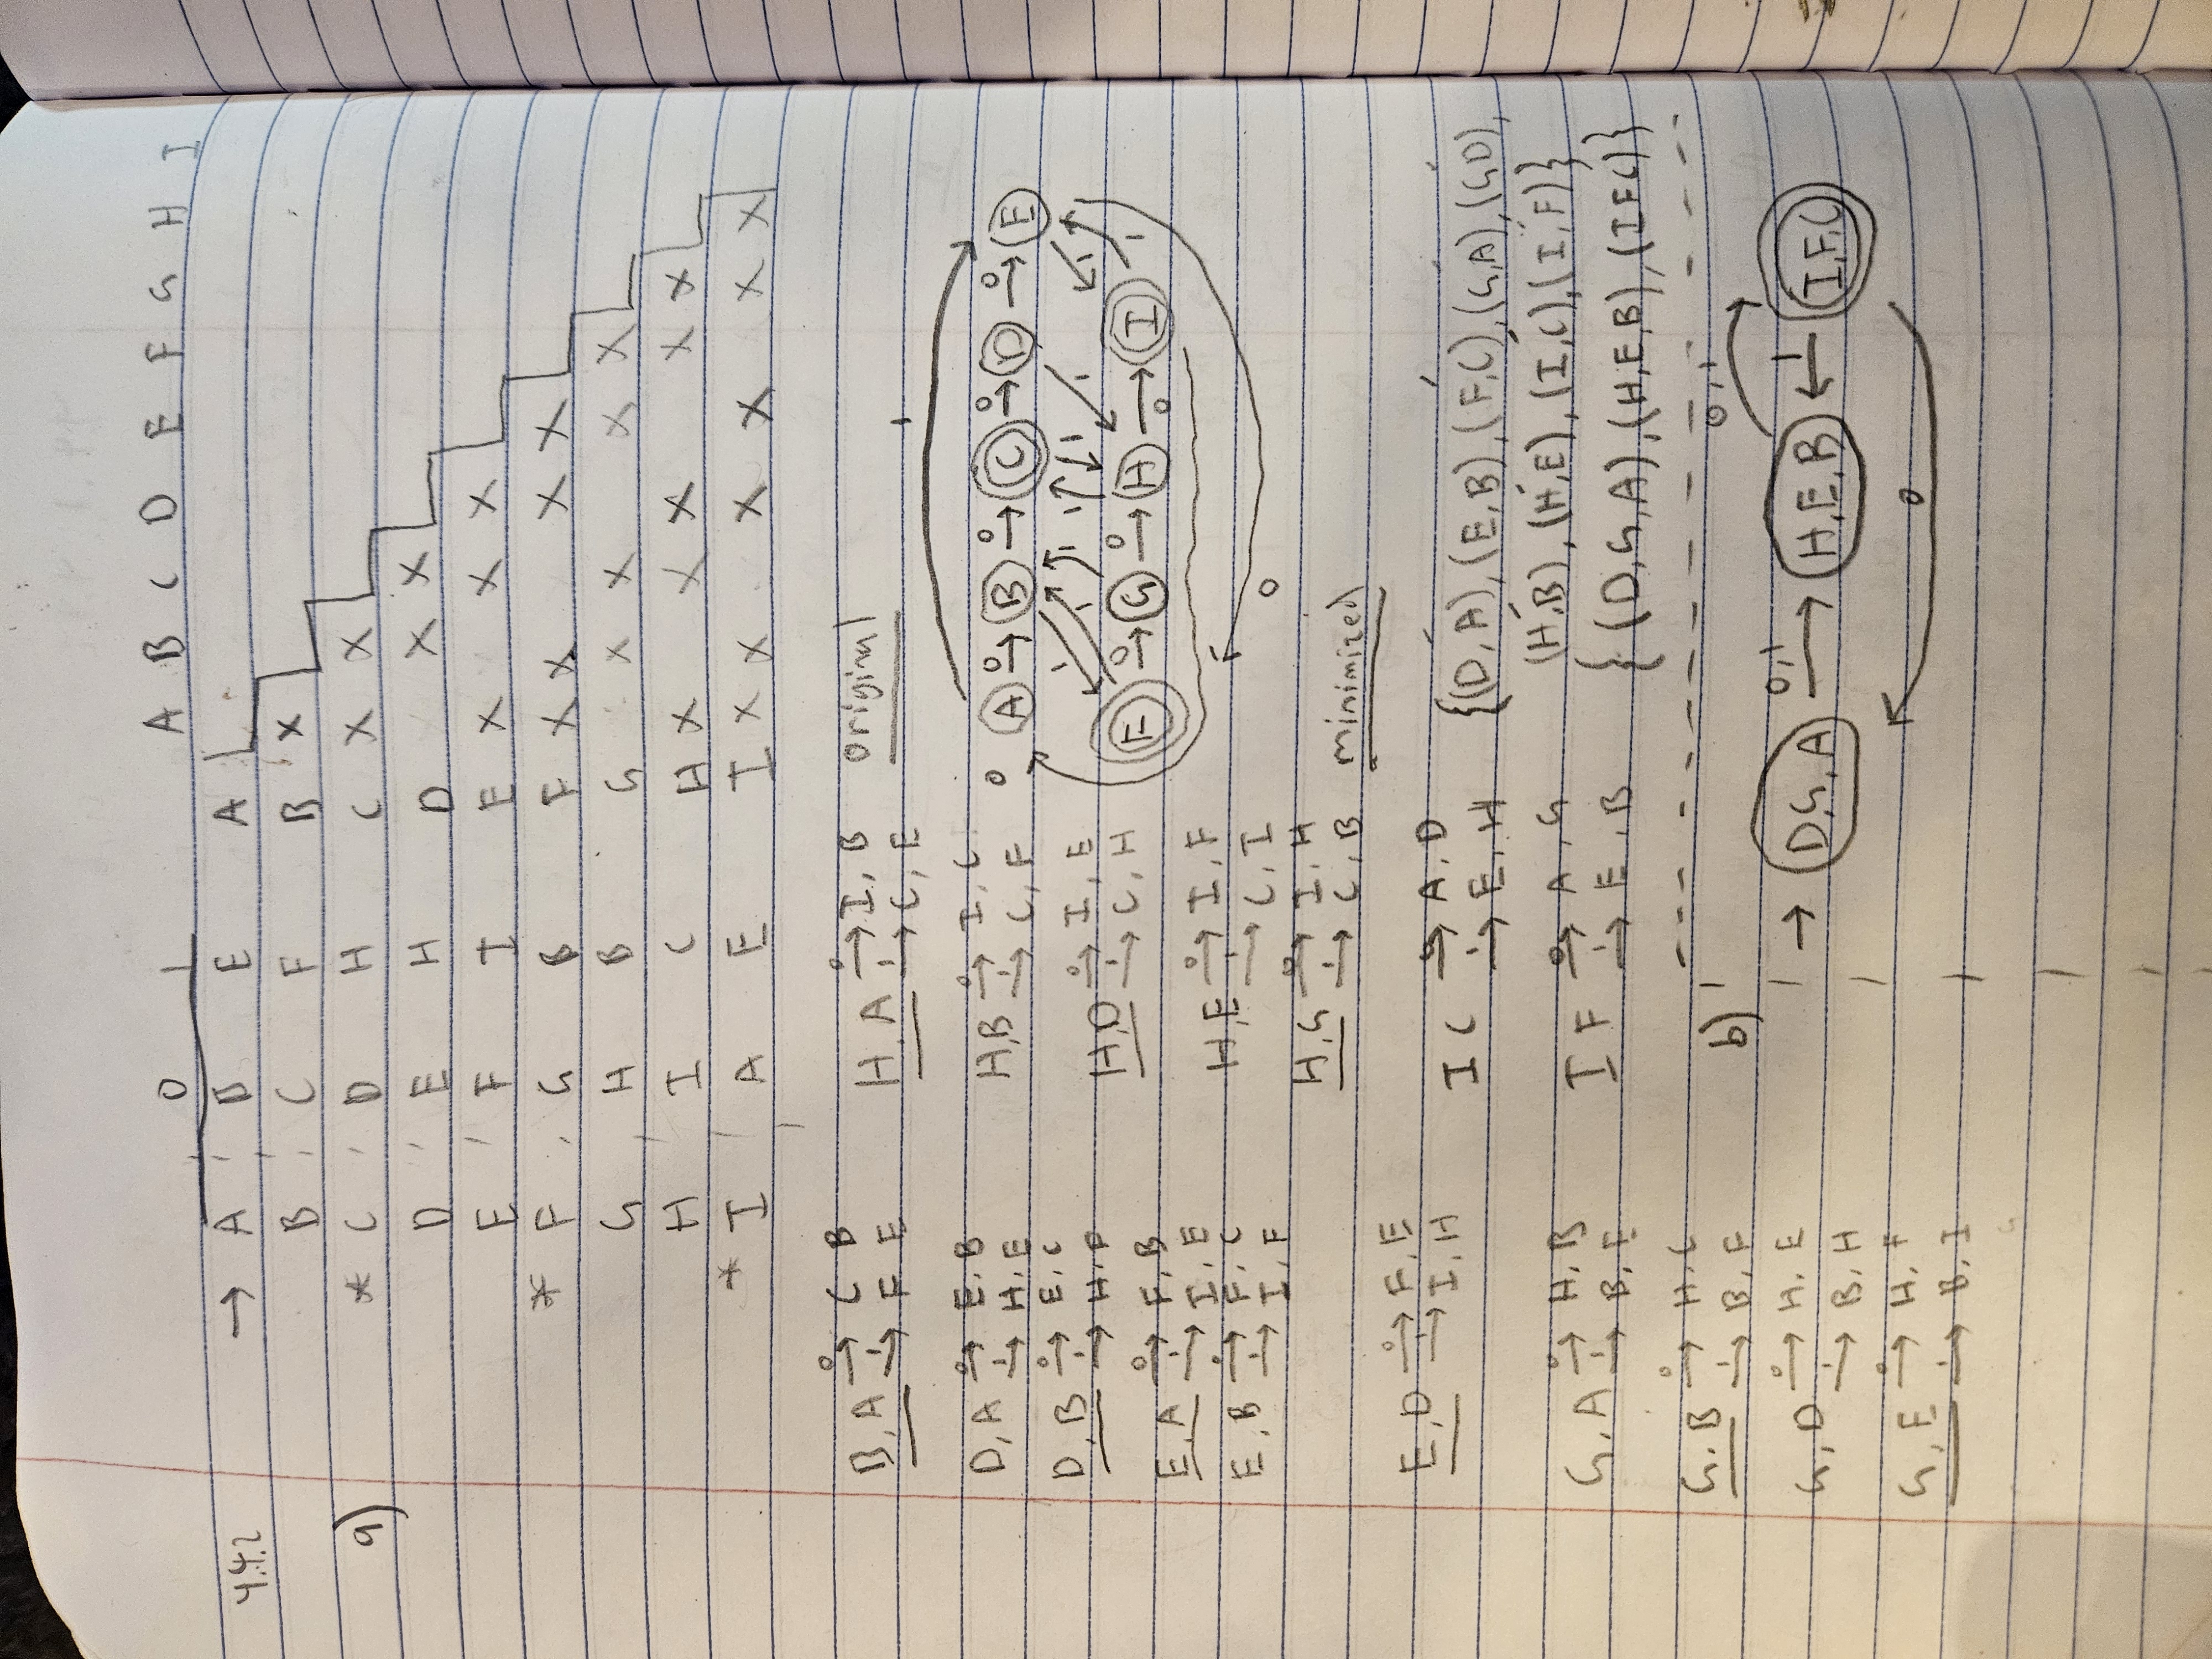 0 1 A B C D E F G H I
4.4.2 → A B E A
B C F B X
a) * C D H C X X
D E H D X X
E F I E X X X
* F G B F X X X X
G H B G X X X X
H I C H X X X X X
* I A E I X X X X X X
B, A 0→ C B
1→ F E
D, A 0→ E, B
1→ H, E
D, B 0→ E, C
1→ H, F
E, A 0→ F, B
1→ I, E
E, B 0→ F, C
1→ I, F
E, D 0→ F, E
1→ I, H
G, A 0→ H, B
1→ B, E
G, B 0→ H, C
1→ B, F
G, D 0→ H, E
1→ B, H
G, E 0→ H, F
1→ B, I
H, A 0→ I, B
1→ C, E
H, B 0→ I, C
1→ C, F
H, D 0→ I, E
1→ C, H
H, E 0→ I, F
1→ C, I
H, G 0→ I, H
1→ C, B
I C 0→ A, D
1→ E, H
I F 0→ A, G
1→ E, B
original
1
0 A 0→ B 0→ C 0→ D 0→ E
1 1 1 1 1 1 1
F 0→ G 0→ H → I 1
0
0
minimized
{(D, A), (E, B), (F, C), (G, A), (G D),
(H, B), (H, E), (I, C), (I, F)}
{(D, G, A), (H, E, B), (I F C)}
b)
0,1
→ D, G, A 0,1→ H, E, B ←1 I, F, C
0